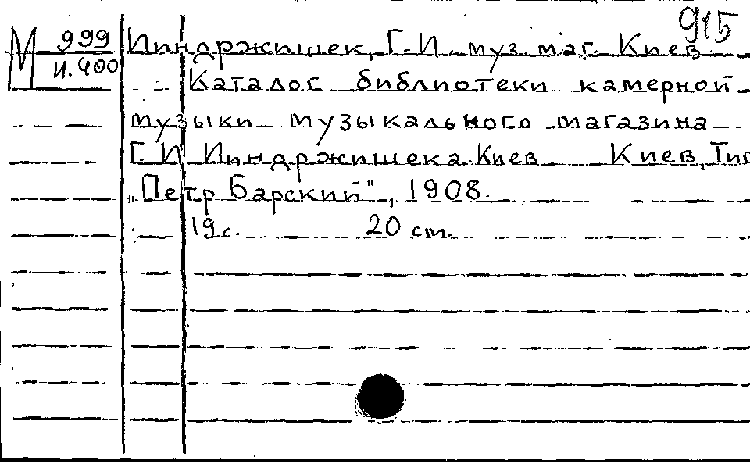 915
М 999 Ииндржишек, Г. И. муз. маг. Киев
И.400 Каталог библиотеки камерной
музыки музыкального магазина
Г. И.Ииндржишека. Киев Киев, Тип
„Петр Барский", 1908.
19 с. 20 см.